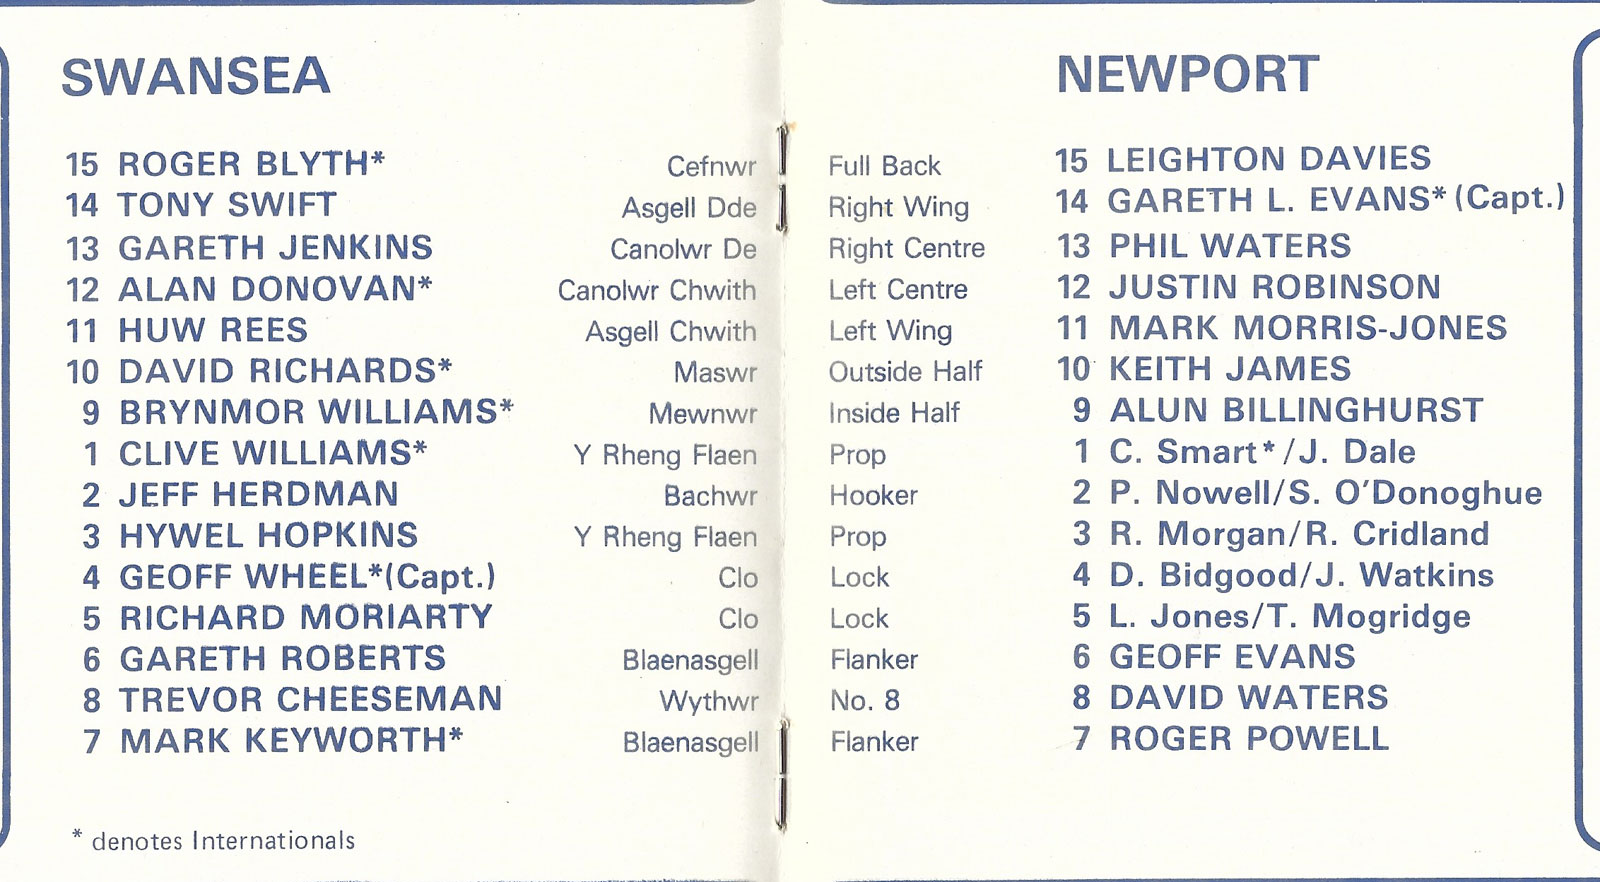 SWANSEA
15 ROGER BLYTH* Cefnwr
14 TONY SWIFT Asgell Dde
13 GARETH JENKINS Canolwr De
12 ALAN DONOVAN* Canolwr Chwith
11 HUW REES Asgell Chwith
10 DAVID RICHARDS* Maswr
9 BRYNMOR WILLIAMS* Mewnwr
1 CLIVE WILLIAMS* Y Rheng Flaen
2 JEFF HERDMAN Bachwr
3 HYWEL HOPKINS Y Rheng Flaen
4 GEOFF WHEEL*(Capt.) Clo
5 RICHARD MORIARTY Clo
6 GARETH ROBERTS Blaenasgell
8 TREVOR CHEESEMAN Wythwr
7 MARK KEYWORTH* Blaenasgell
* denotes Internationals
NEWPORT
Full Back 15 LEIGHTON DAVIES
Right Wing 14 GARETH L. EVANS* (Capt.)
Right Centre 13 PHIL WATERS
Left Centre 12 JUSTIN ROBINSON
Left Wing 11 MARK MORRIS-JONES
Outside Half 10 KEITH JAMES
Inside Half 9 ALUN BILLINGHURST
Prop 1 C. Smart*/J. Dale
Hooker 2 P. Nowell/S. O'Donoghue
Prop 3 R. Morgan/R. Cridland
Lock 4 D. Bidgood/J. Watkins
Lock 5 L. Jones/T. Mogridge
Flanker 6 GEOFF EVANS
No. 8 8 DAVID WATERS
Flanker 7 ROGER POWELL